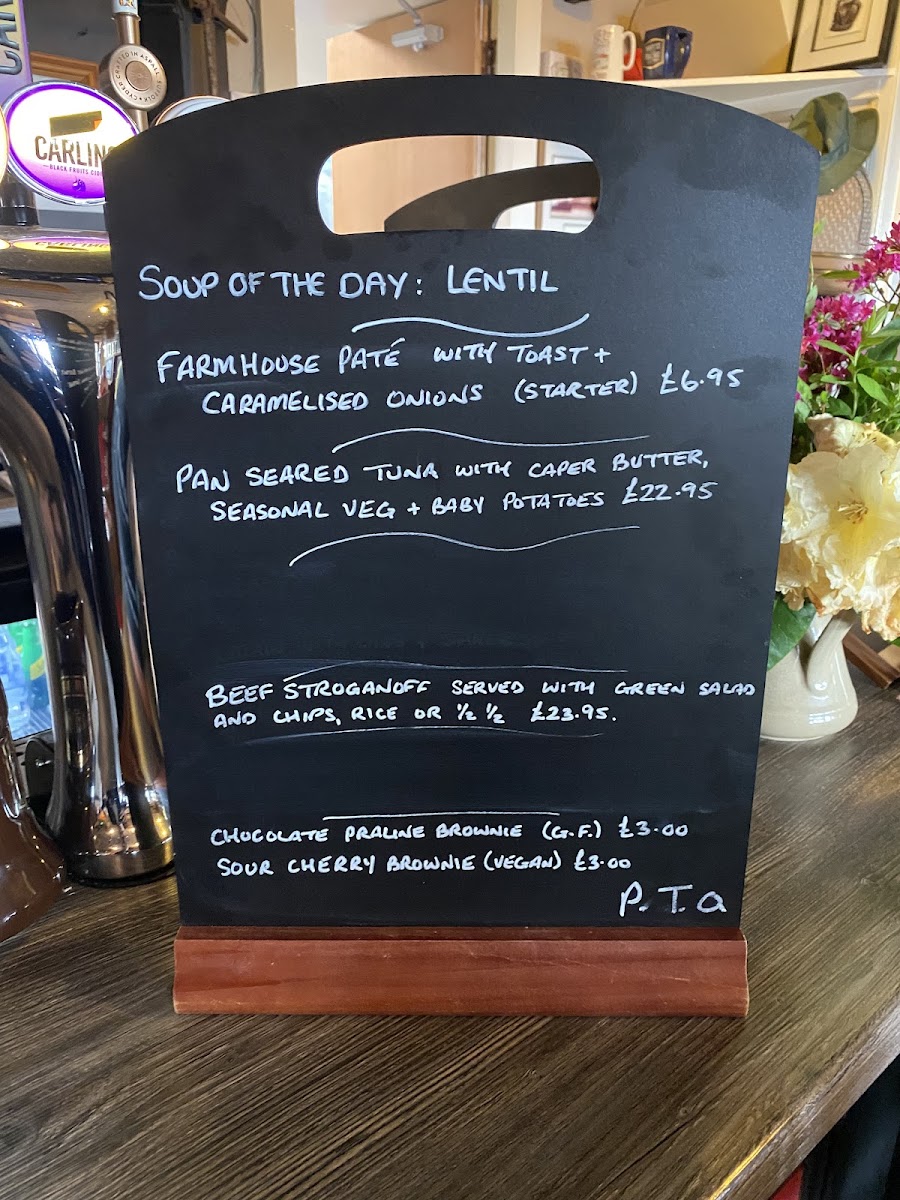 CARLING
BLACK FRUITS CIDER
SOUP OF THE DAY: LENTIL
FARMHOUSE PATÉ WITH TOAST +
CARAMELISED ONIONS (STARTER) £6.95
PAN SEARED TUNA WITH CAPER BUTTER,
SEASONAL VEG + BABY POTATOES £22.95
BEEF STROGANOFF SERVED WITH GREEN SALAD
AND CHIPS, RICE OR ½ ½ £23.95.
CHOCOLATE PRALINE BROWNIE (G.F.) £3.00
SOUR CHERRY BROWNIE (VEGAN) £3.00
P.T.a